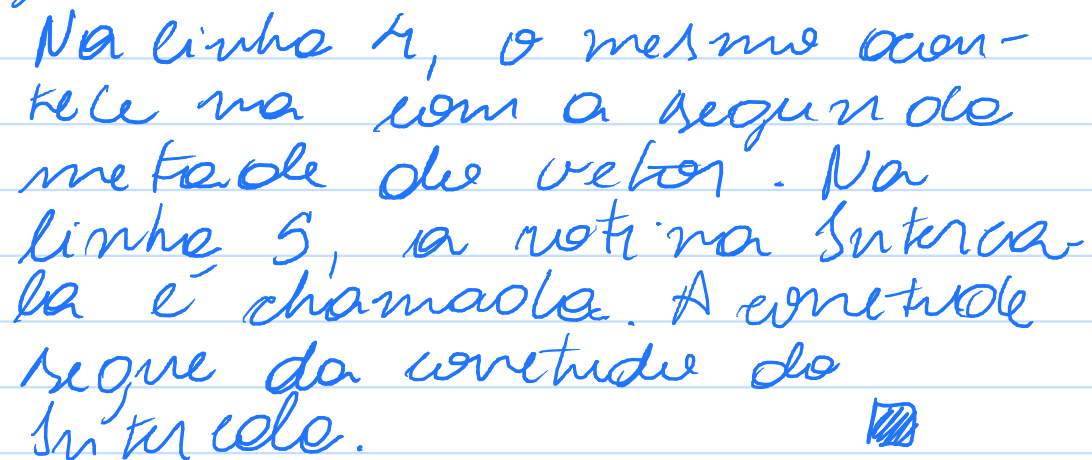 Na linha 4, o mesmo acon-
tece na com a segunda
metade do vetor. Na
linha 5, a rotina Interca-
la é chamada. A corretude
segue da corretude do
Intercala.